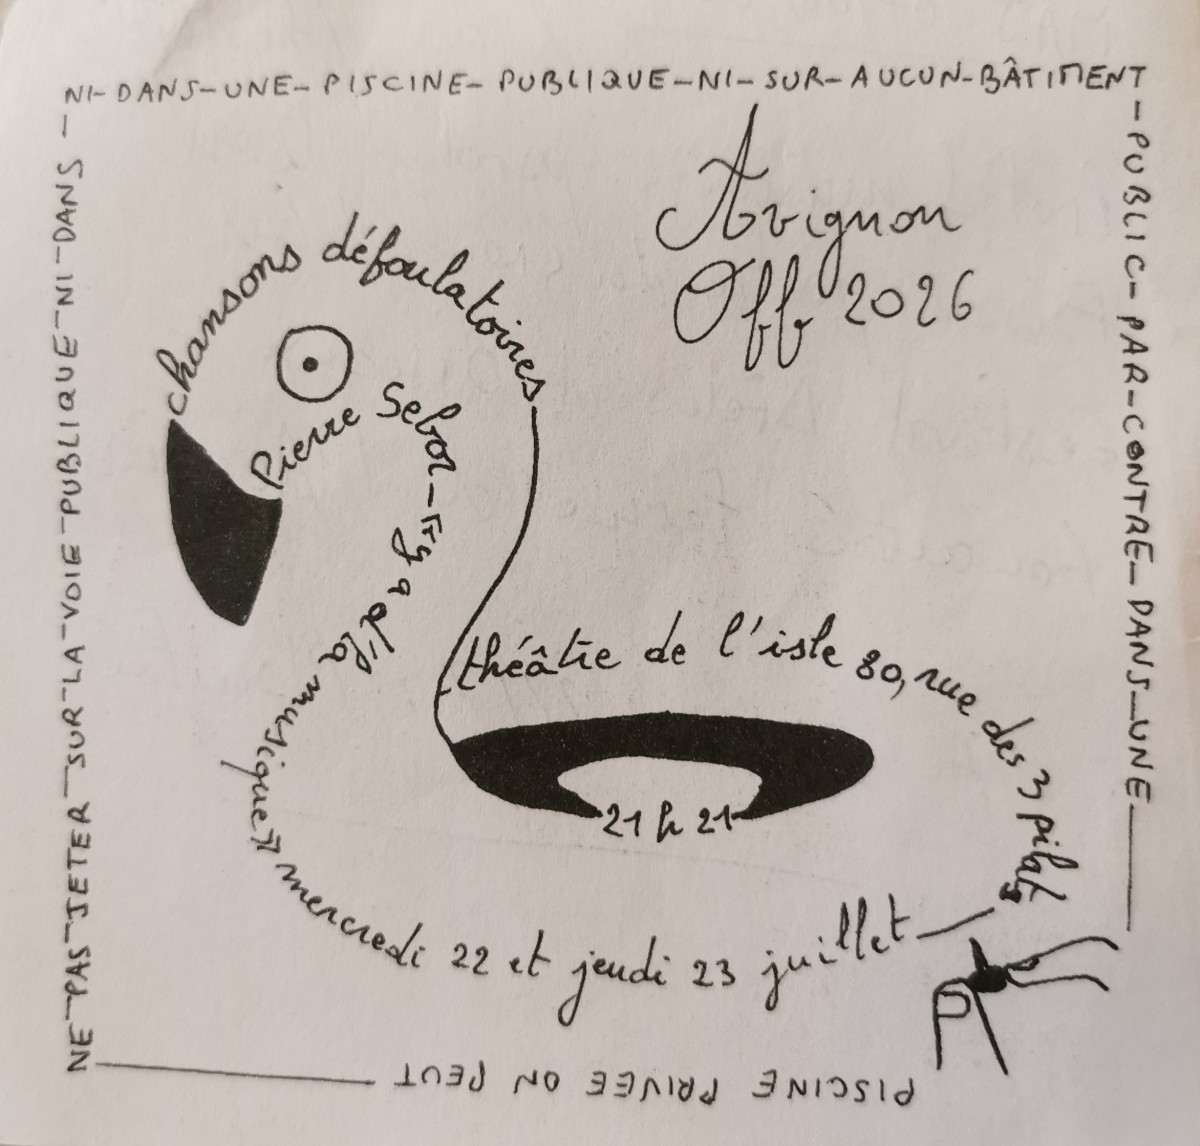 NE-PAS-JETER-SUR-LA-VOIE-PUBLIQUE-NI-DANS-
NI-DANS-UNE-PISCINE-PUBLIQUE-NI-SUR-AUCUN-BÂTIMENT
-PUBLIC-PAR-CONTRE-DANS-UNE
PISCINE PRIVEE ON PEUT
Avignon
Off 2026
chansons défoulatoires
Pierre Sebor-"y a d'la musique"
théâtre de l'isle 80, rue des 3 pilats
21 h 21
mercredi 22 et jeudi 23 juillet